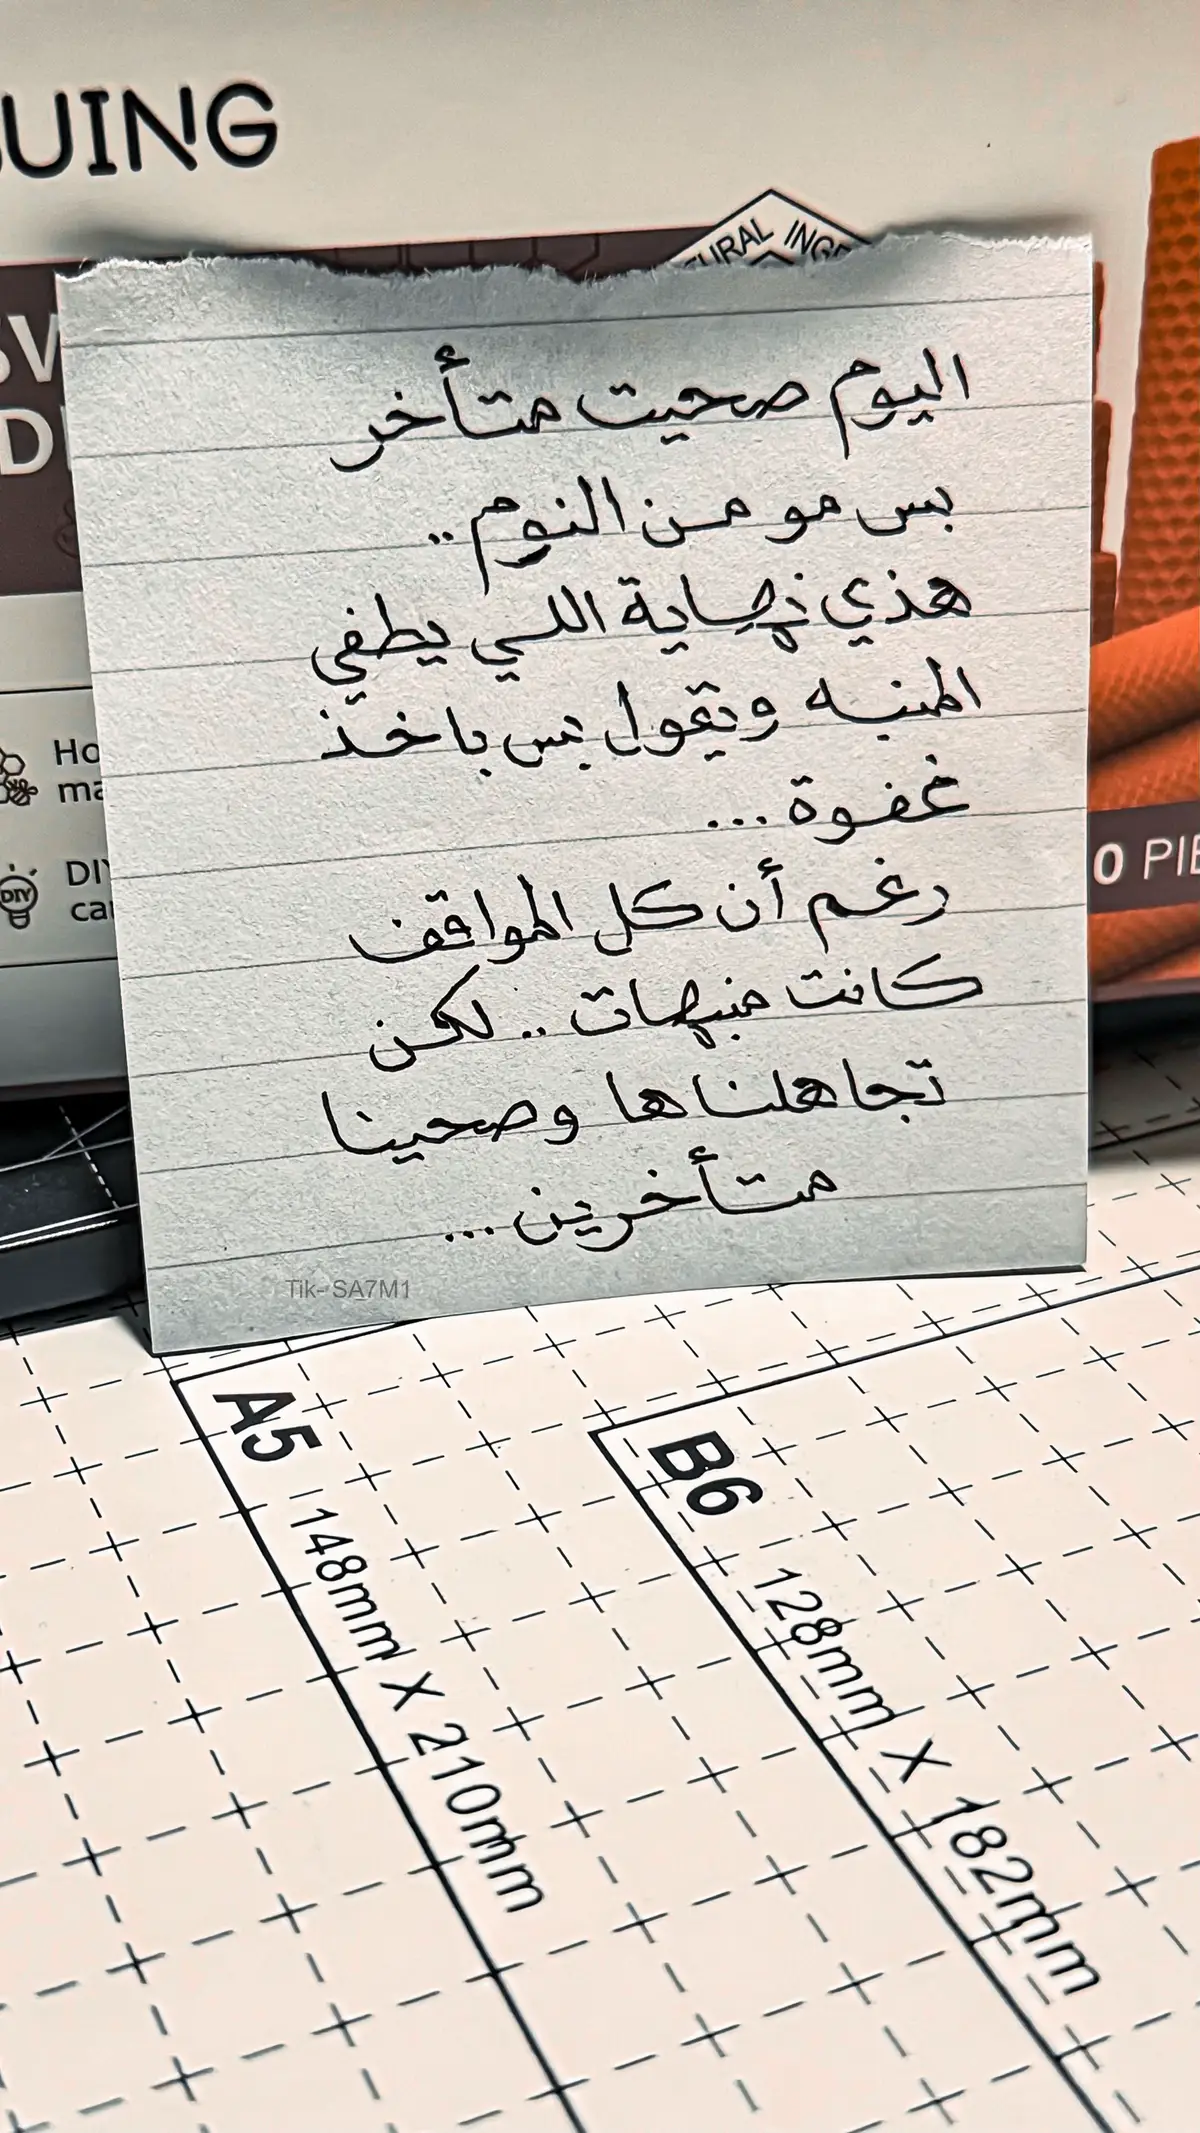 UING
URAL INGR
اليوم صحيت متأخر
بس مو من النوم ..
هذي نهاية اللي يطفي
المنبه ويقول بس باخذ
غفوة ...
رغم أن كل المواقف
كانت منبهات .. لكن
تجاهلناها وصحينا
متأخرين ...
Ho
ma
DIY
DIY
ca
0 PIE
Tik- SA7M1
A5 148mm X 210mm
B6 128mm X 182mm